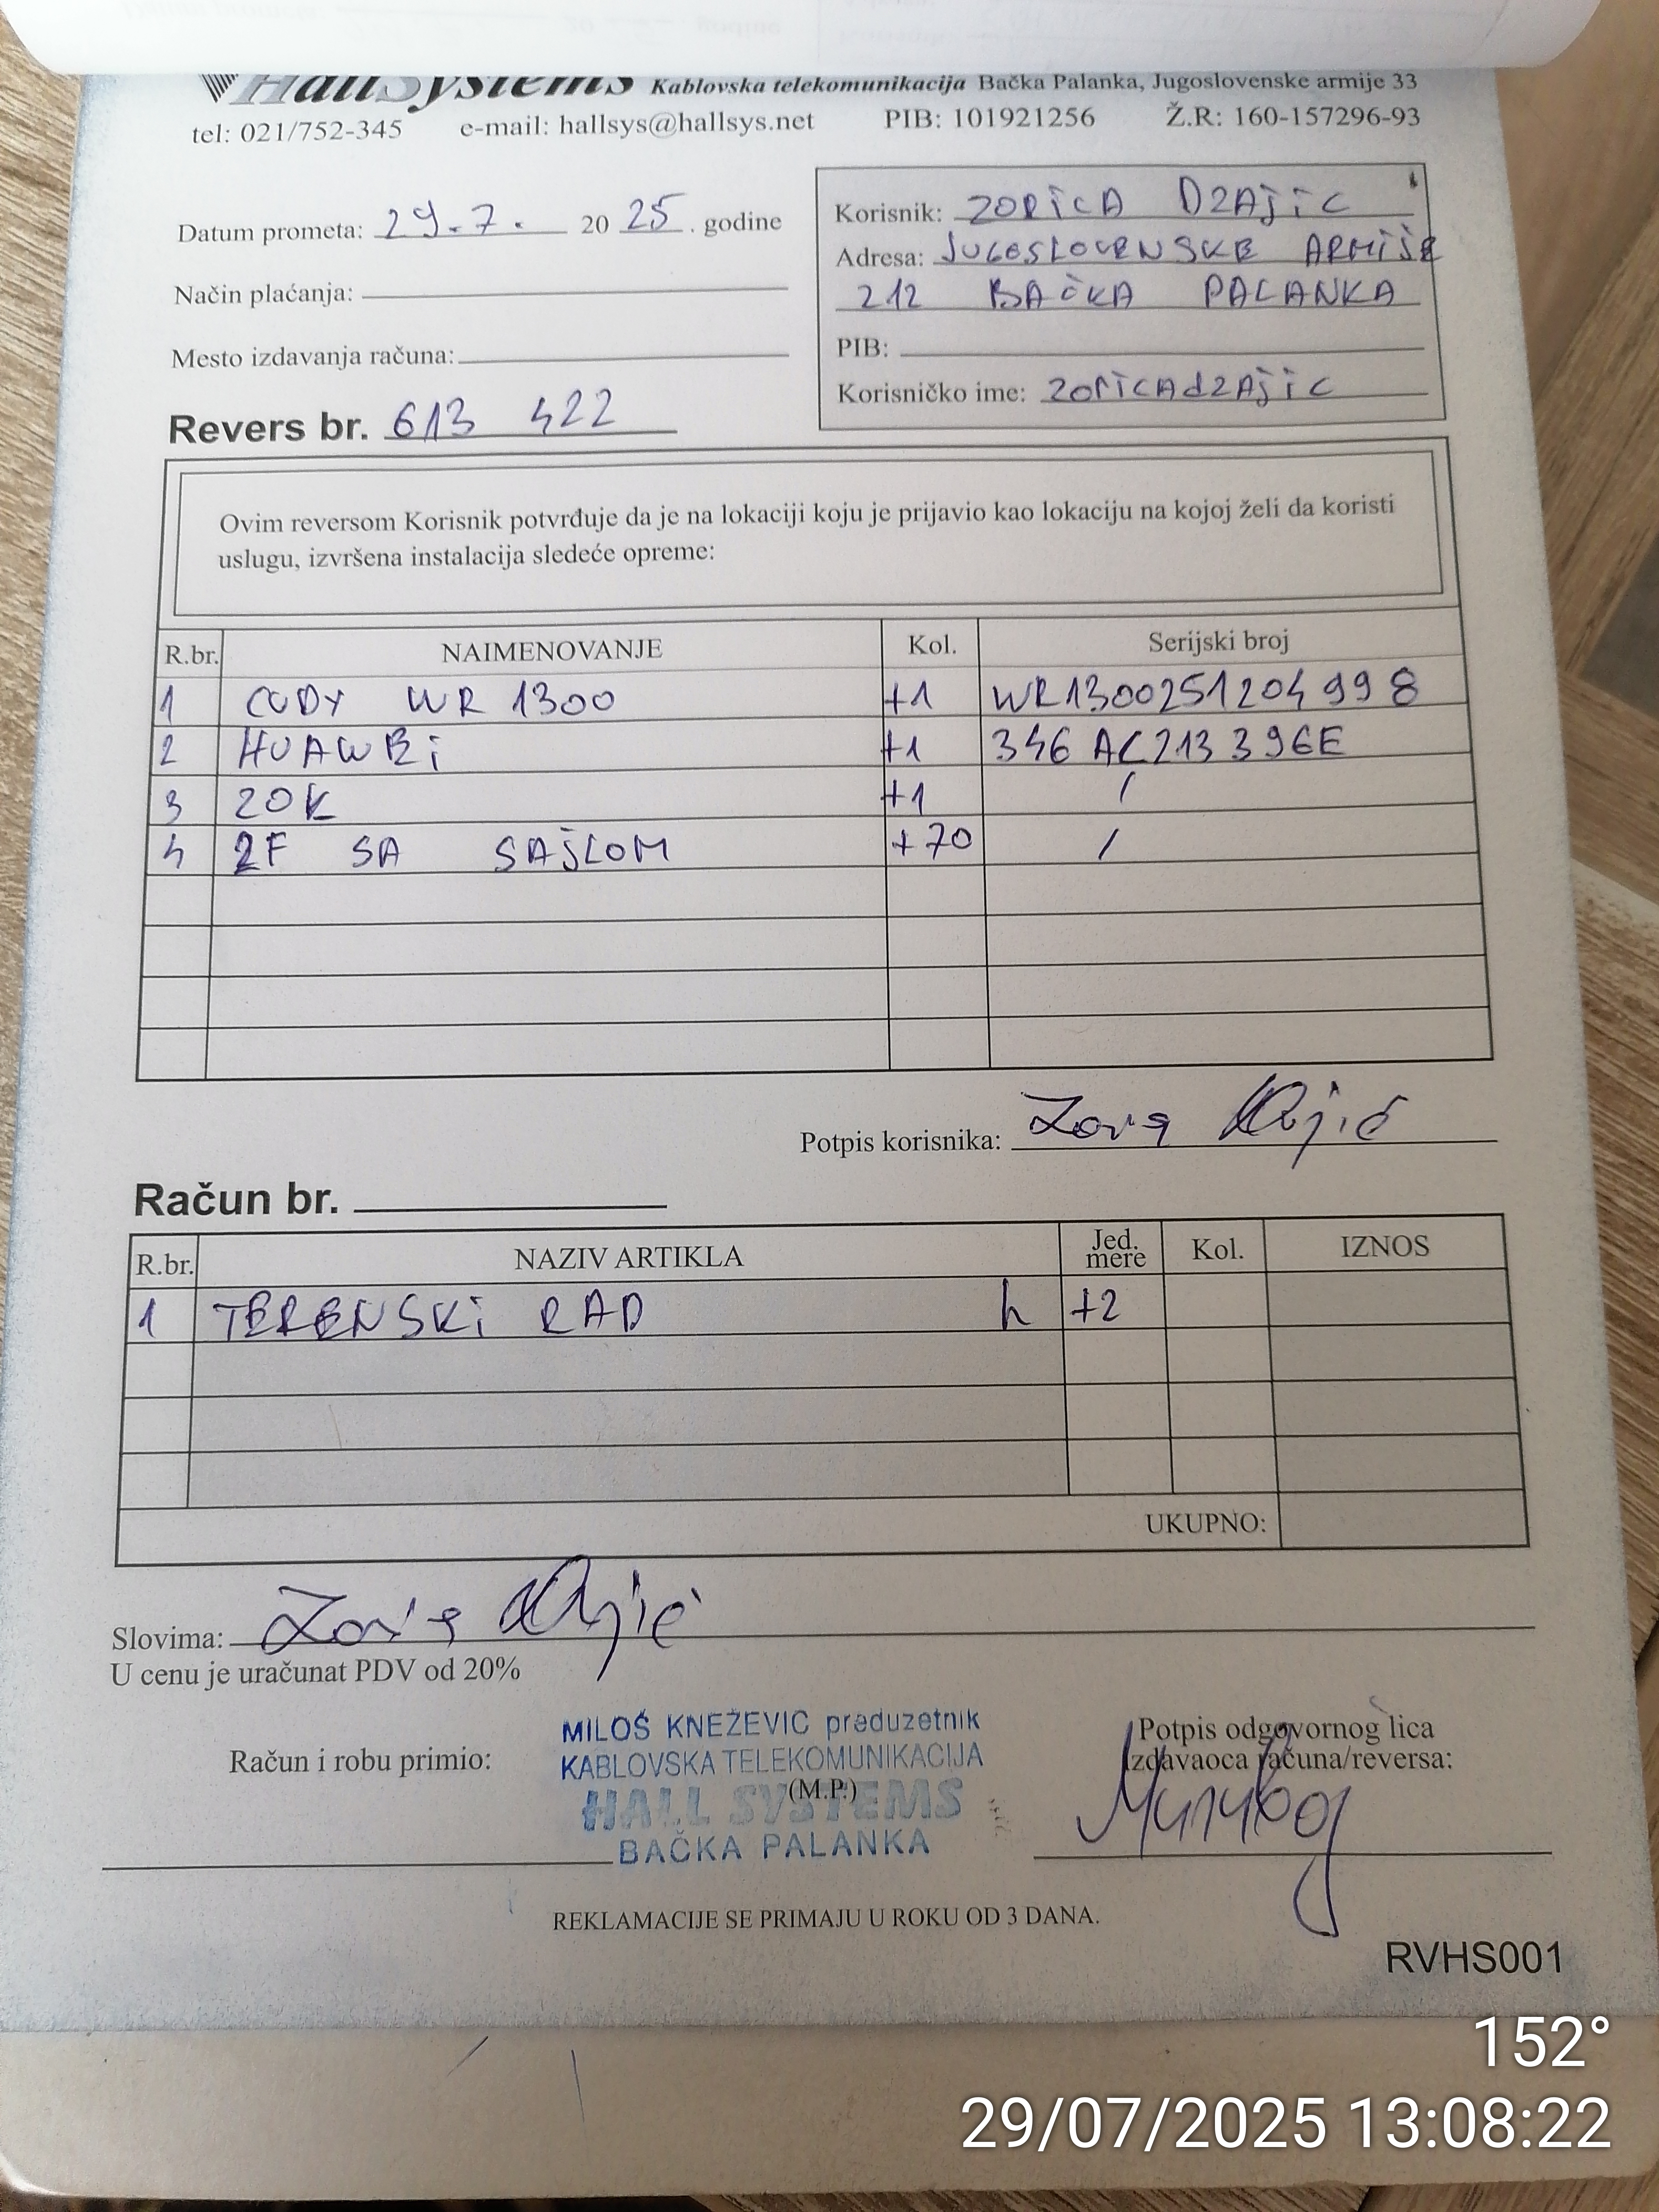 HallSystems Kablovska telekomunikacija Bačka Palanka, Jugoslovenske armije 33
tel: 021/752-345 e-mail: hallsys@hallsys.net PIB: 101921256 Ž.R: 160-157296-93
Datum prometa: 29.7. 20 25 . godine
Način plaćanja:
Mesto izdavanja računa:
Revers br. 613 422
Korisnik: ZORICA DZAJIC
Adresa: JUGOSLOVENSKE ARMIJE
212 BAČKA PALANKA
PIB:
Korisničko ime: zoricadzajic
Ovim reversom Korisnik potvrđuje da je na lokaciji koju je prijavio kao lokaciju na kojoj želi da koristi
uslugu, izvršena instalacija sledeće opreme:
R.br. NAIMENOVANJE Kol. Serijski broj
1 CUDY WR 1300 +1 WR1300251204998
2 HUAWEi +1 346AC213396E
3 ZOK +1 /
4 2F SA SAJLOM +70 /
Potpis korisnika:
Račun br.
R.br. NAZIV ARTIKLA Jed. mere Kol. IZNOS
1 TERENSKi RAD h +2
UKUPNO:
Slovima:
U cenu je uračunat PDV od 20%
Račun i robu primio:
MILOŠ KNEŽEVIĆ preduzetnik
KABLOVSKA TELEKOMUNIKACIJA
(M.P.)
HALL SYSTEMS
BAČKA PALANKA
Potpis odgovornog lica
Izdavaoca računa/reversa:
REKLAMACIJE SE PRIMAJU U ROKU OD 3 DANA.
RVHS001
152°
29/07/2025 13:08:22